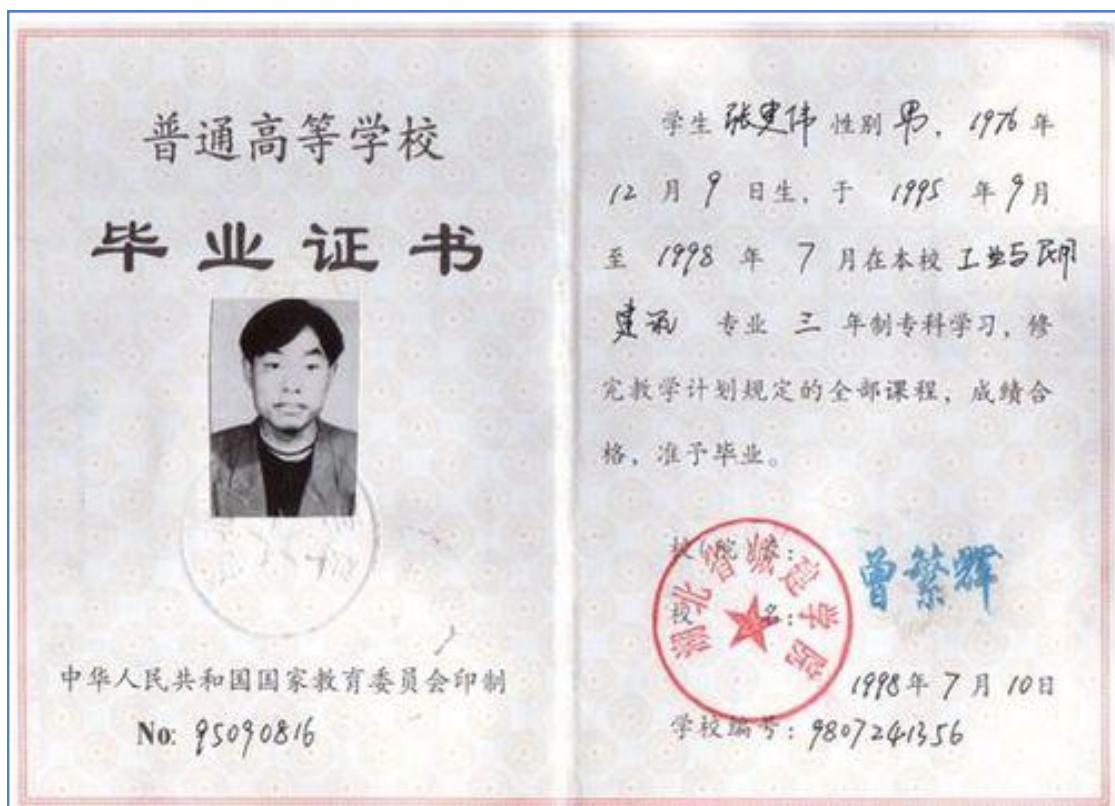 普通高等学校
毕业证书
中华人民共和国国家教育委员会印制
No: 95090816
学生 张建伟 性别 男, 1976 年
12 月 9 日生, 于 1995 年 9 月
至 1998 年 7 月在本校 工业与民用
建筑 专业 三 年制专科学习, 修
完教学计划规定的全部课程, 成绩合
格, 准予毕业。
校（院）长:
曾繁辉
校 名:
湖北省城建学院
1998 年 7 月 10 日
学校编号: 9807241356